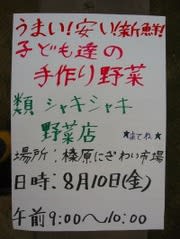 うまい!安い!新鮮!
子ども達の
手作り野菜
類 シャキシャキ
野菜店
★来てね★
場所:榛原にぎわい市場
日時:8月10日(金)
午前9:00〜10:00